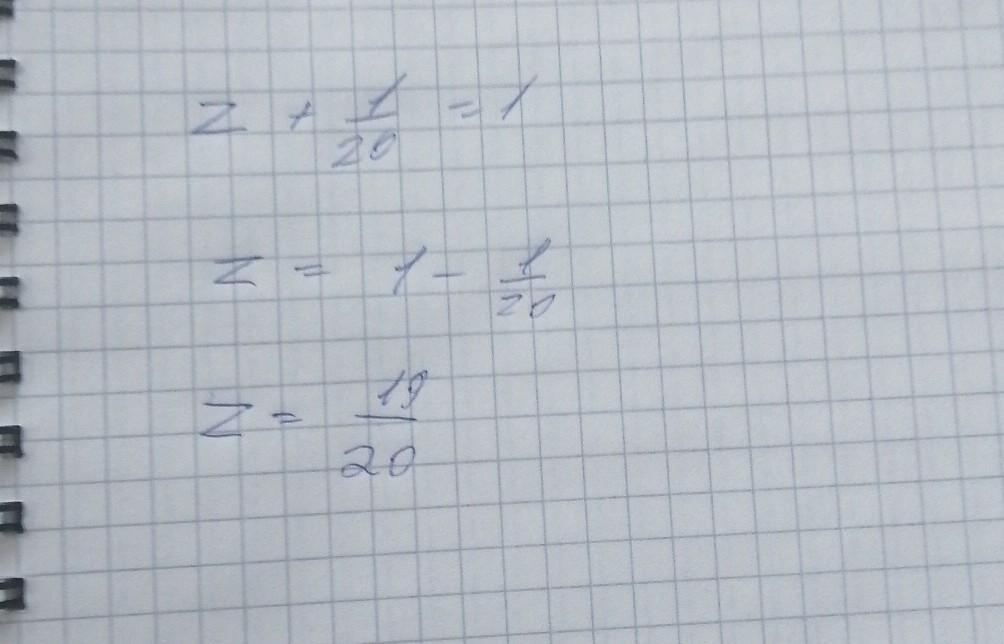 z + 1/20 = 1
z = 1 - 1/20
z = 19/20